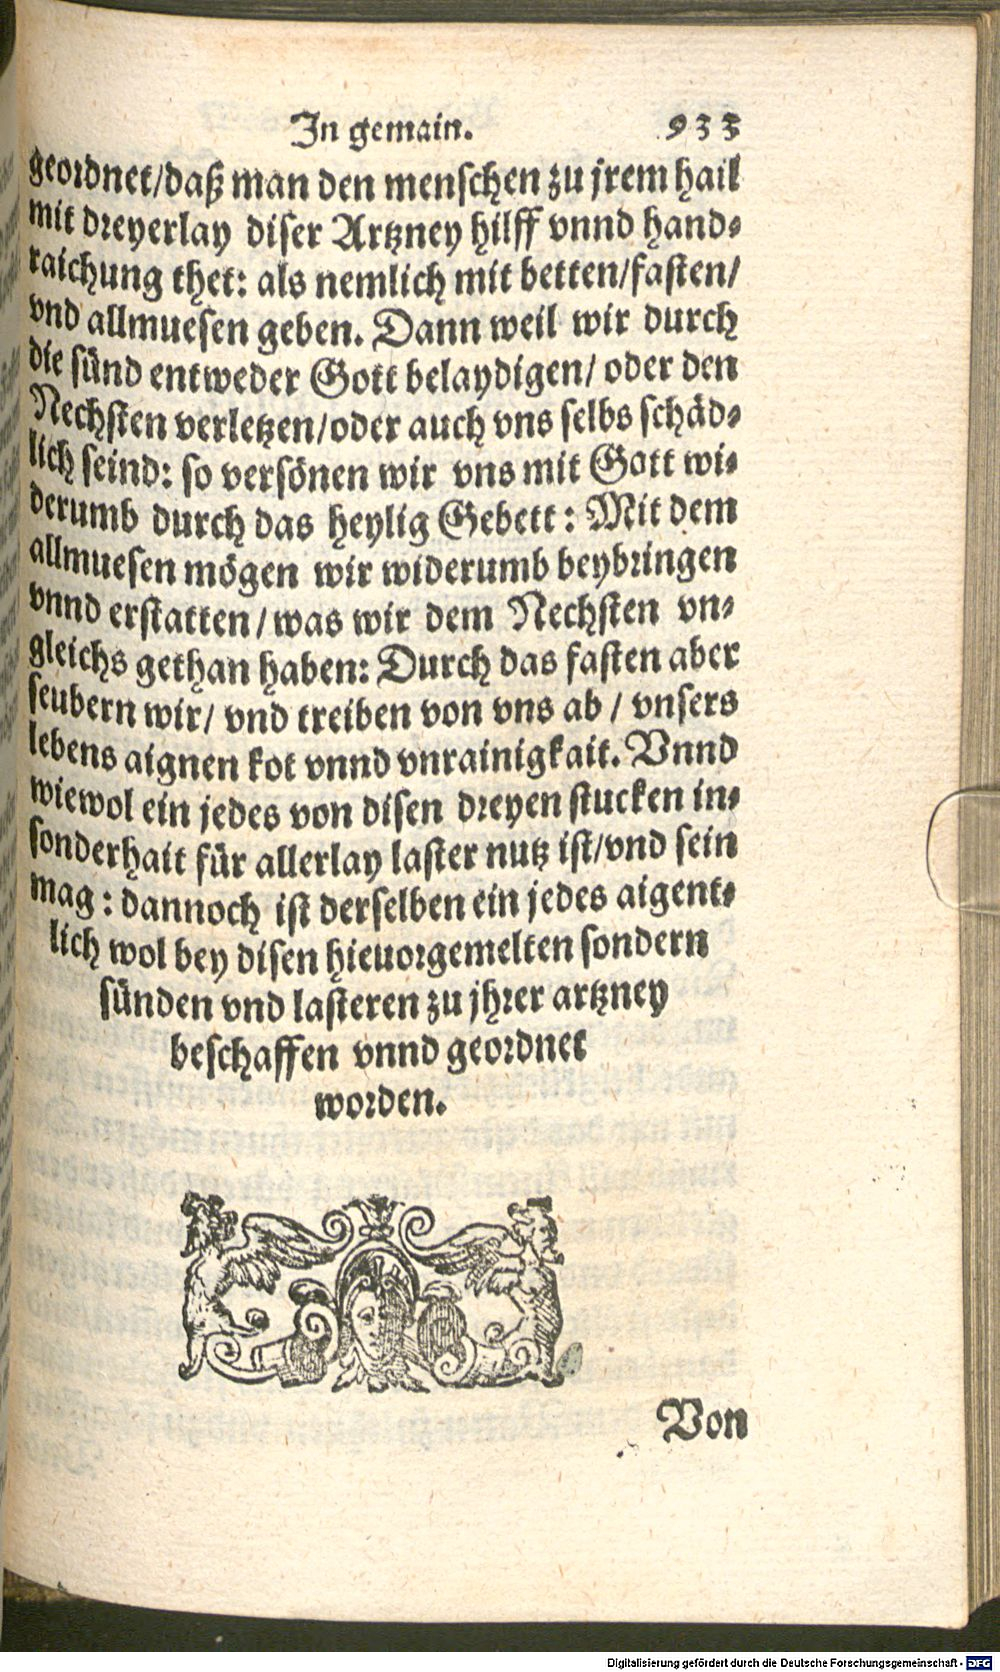 In gemain. 933
geordnet/daß man den menschen zu jrem hail
mit dreyerlay diser Artzney hilff vnnd hand-
raichung thet: als nemlich mit betten/fasten/
vnd allmuesen geben. Dann weil wir durch
die sünd entweder Gott belaydigen/ oder den
Nechsten verletzen/oder auch vns selbs schäd-
lich seind: so versönen wir vns mit Gott wi-
derumb durch das heylig Gebett: Mit dem
allmuesen mögen wir widerumb beybringen
vnnd erstatten/was wir dem Nechsten vn-
gleichs gethan haben: Durch das fasten aber
seubern wir/ vnd treiben von vns ab/ vnsers
lebens aignen kot vnnd vnrainigkait. Vnnd
wiewol ein jedes von disen dreyen stucken in-
sonderhait für allerlay laster nutz ist/vnd sein
mag: dannoch ist derselben ein jedes aigent-
lich wol bey disen hieuorgemelten sondern
sünden vnd lasteren zu jhrer artzney
beschaffen vnnd geordnet
worden.
Von
Digitalisierung gefördert durch die Deutsche Forschungsgemeinschaft - DFG